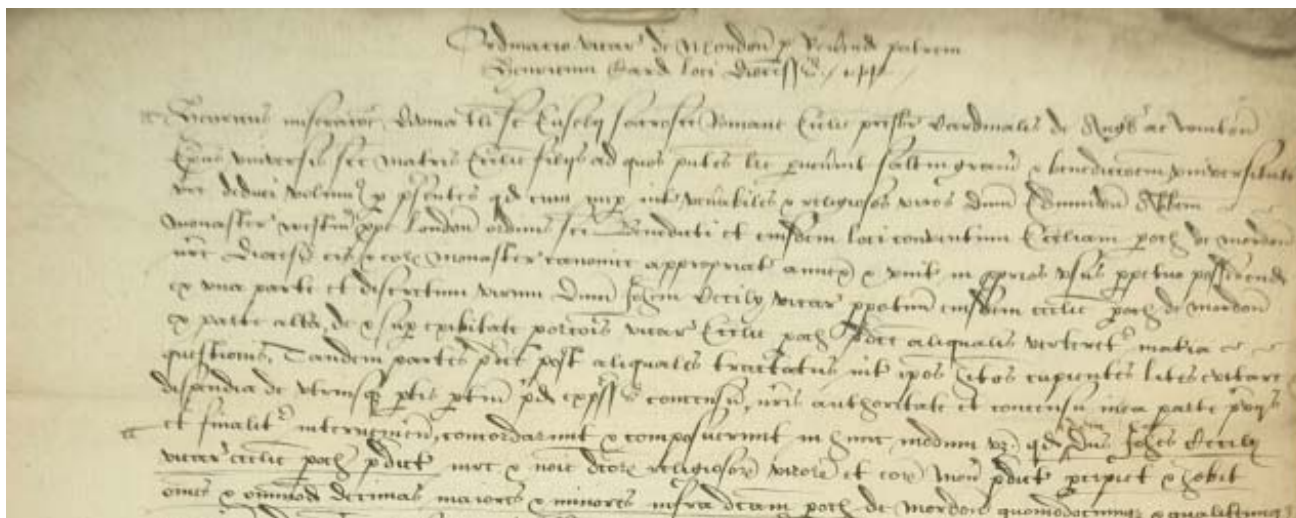 Ordinacio vicar' de Mordon p Reverend patrem
Henricum Card loci Diocess
Henricus miseracoe Divina tli sc Eusebij sacrosce Romane Ecclie presbr Cardinalis de Angl' ac Wynton
Epus universis sce matris Ecclie filijs ad quos pntes lre pervenint saltm gram & benediccoem universitati
vre deduci volum' p psentes qd cum nup int venabiles & religiosos viros Dnm Edmundum Abbem
monaster' Westm ppe London ordinis sci Benedicti et eiusdem loci conventum Eccliam poch de Mordon
nre Dioces' eis & eor monaster' canonice appropriat annex & unit in pprios usus ppetuo possidend
ex una parte et discretum virum Dnm Johem Cecily vicar ppetuu eiusdem ecclie poch de Mordon
ex parte alta, de & sup exilitate porcois vicar' Ecclie poch pdce aliqualis verteret' matia
questionis, Tandem partes pdict post aliquales tractatus int ipos hitos cupientes lites evitare
dispendia de utriusq ptis ptim pd expss consensu, nris authoritate et concensu in ea parte pvijs
et finalit' intervenien, concordarunt & composuerunt in hunc modum vz qd Dns Johes Cecily
vicar' ecclie poch pdict noie dcor religiosor viror et eor mon pdict pcipiet & hebit
omes & omnimod decimas maiores & minores infra dcam poch de Mordon quomodocunq & qualitercunq